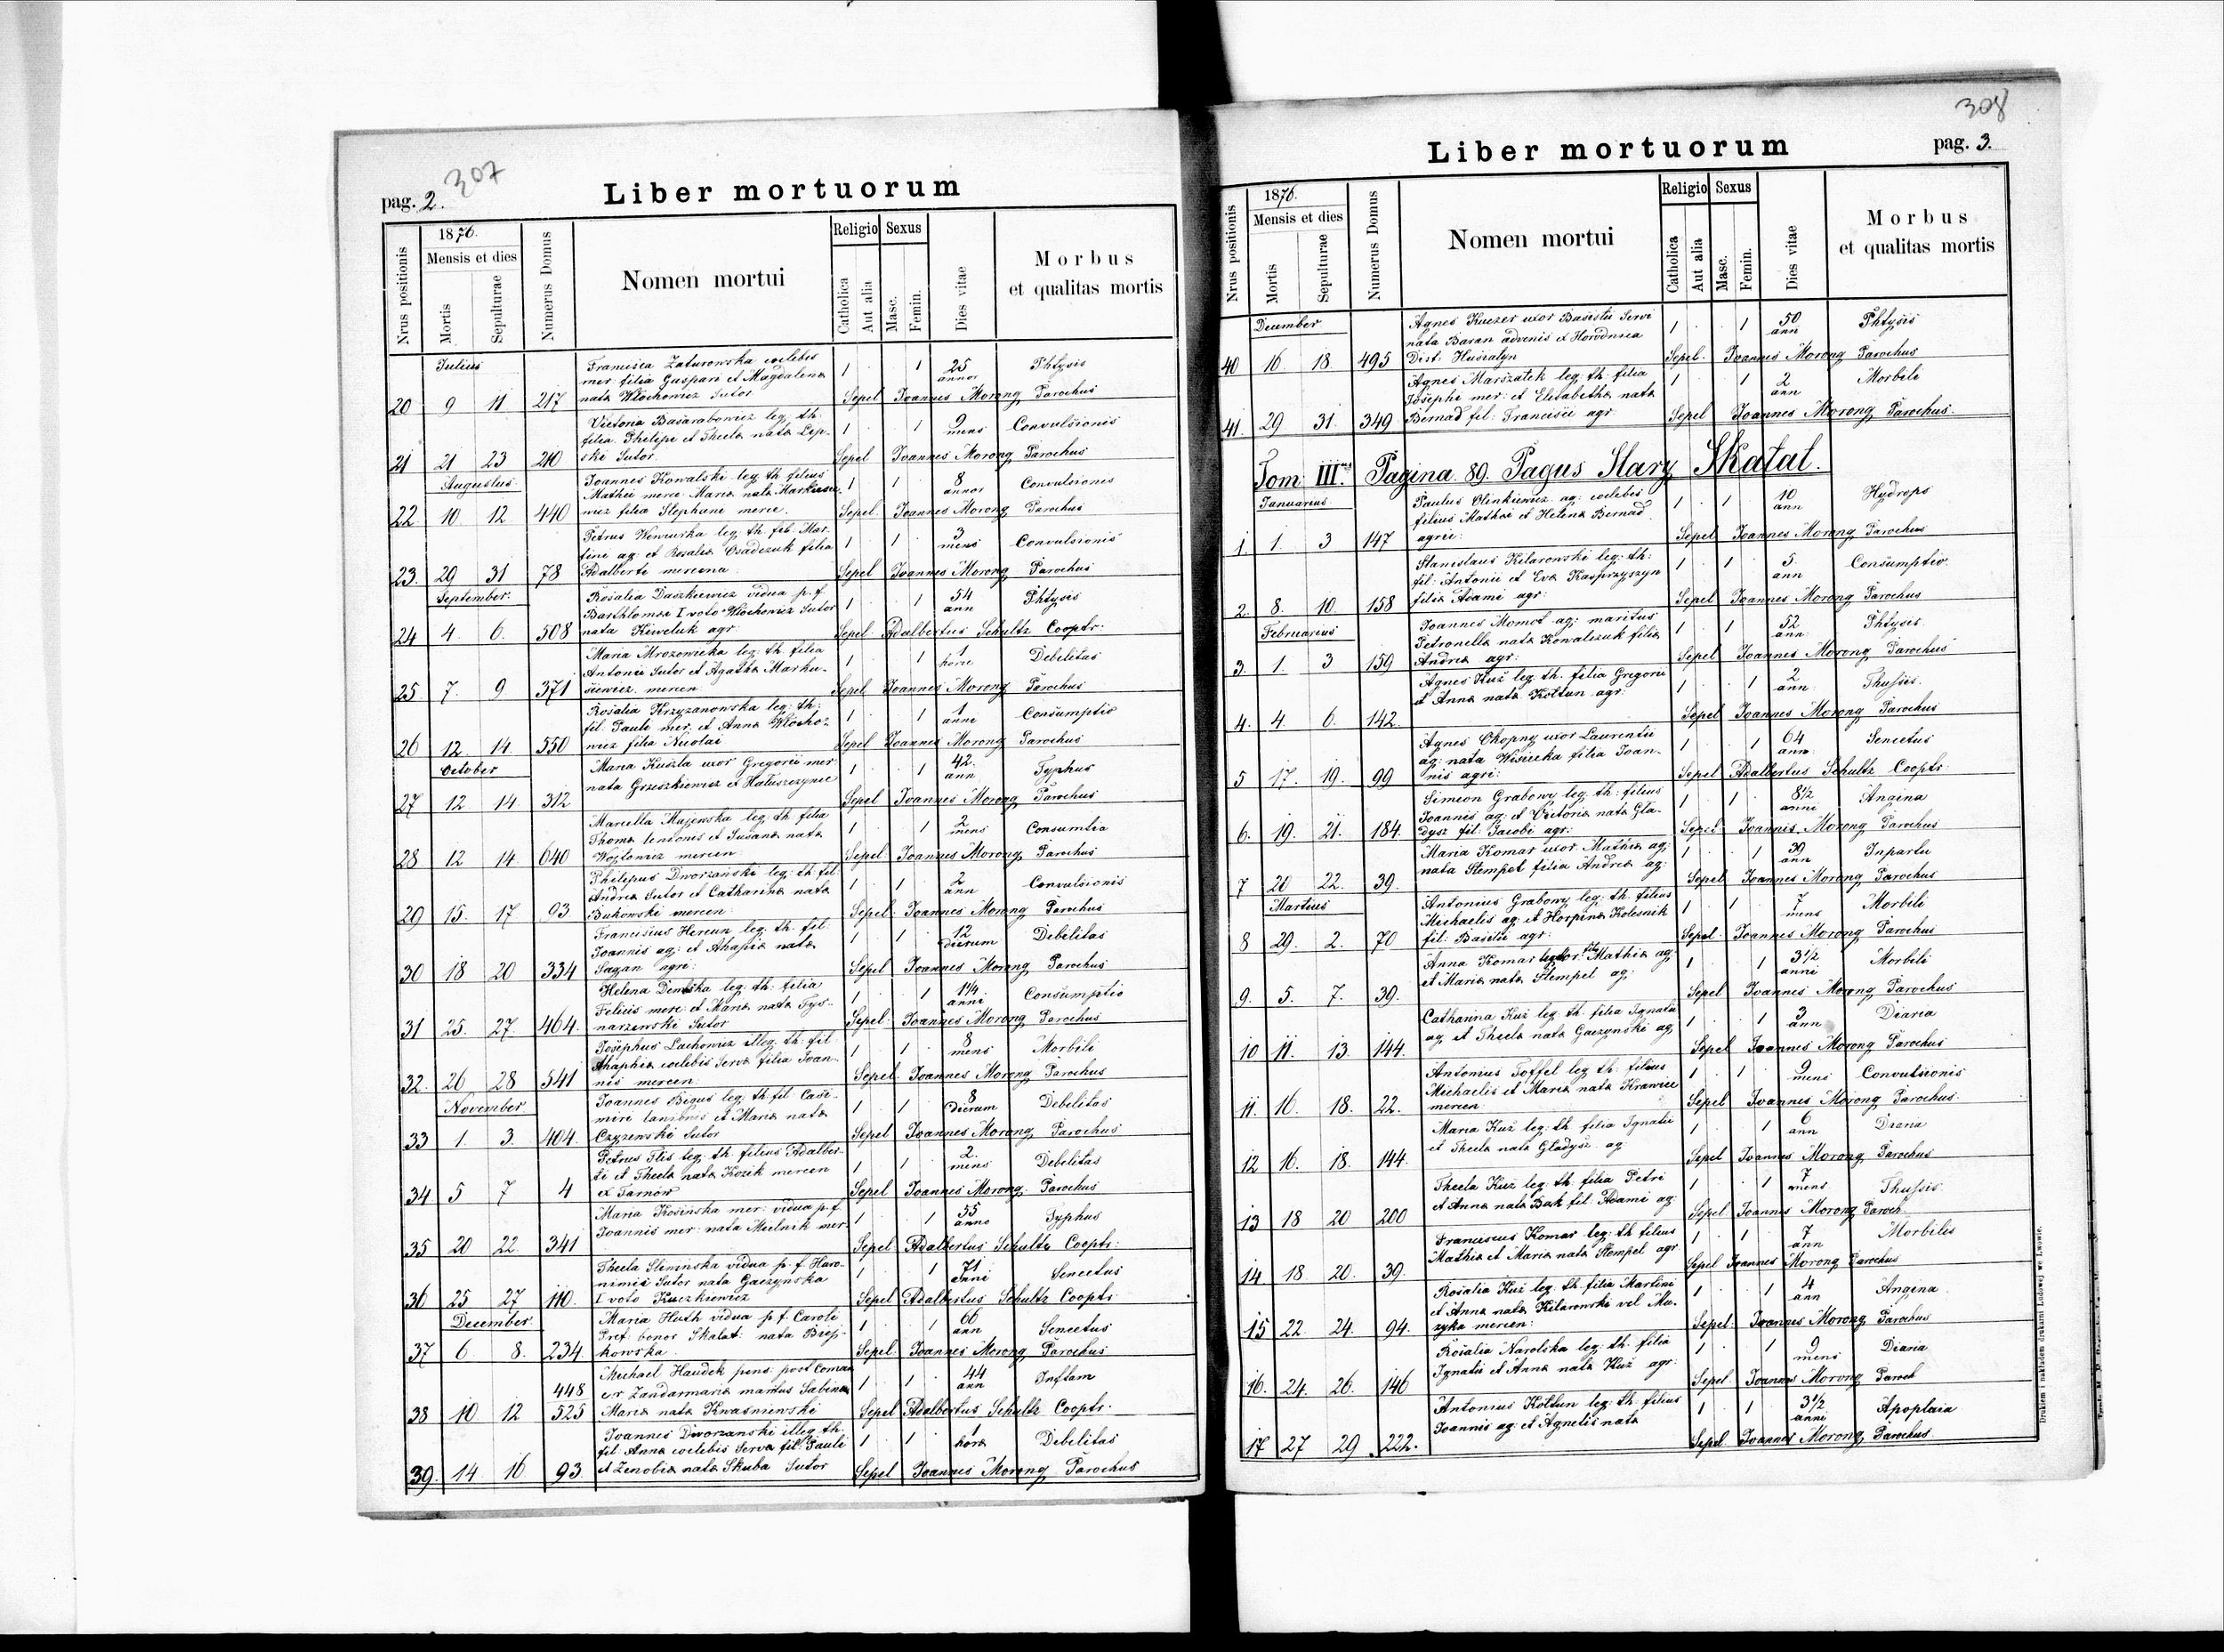 307
pag. 2.
Liber mortuorum
Nrus positionis
1876.
Mensis et dies
Mortis
Sepulturae
Numerus Domus
Nomen mortui
Religio
Catholica
Aut alia
Sexus
Masc.
Femin.
Dies vitae
Morbus
et qualitas mortis
Julius
Francisca Zaturowska coelebs
mer. filia Gaspari et Magdalena
nata Włochowicz Sutor
1 1 25 annor Phtysis
20 9 11 217 Sepel Joannes Morong Parochus
Victoria Basarabowicz leg. th.
filia Philipi et Thecla nata Lep-
ski Sutor
1 1 9 mens Convulsionis
21 21 23 210 Sepel Joannes Morong Parochus
Augustus
Joannes Kowalski leg. th filius
Mathei merc. Maria nata
wicz filia Stephani merc.
1 1 8 annor Convulsiones
22 10 12 440 Sepel. Joannes Morong Parochus
Petrus Wewiurka leg. th. fil. Mar-
tini ag. et Rosalia Osadczuk filia
Adalberti
1 1 3 mens Convulsionis
23. 29 31 78 Sepel Joannes Morong Parochus
September.
Rosalia Daszkiewicz vidua p. f.
Barthlomea I voto Włochowicz Sutor
nata Kiweluk agr.
1 1 54 ann Phtysis
24 4. 6. 508 Sepel Adalbertus Schultz Cooptr.
Maria Mrozowicka leg: th. filia
Antonii Sutor et Agatha Marku-
siewicz mercen
1 1 1 hore Debilitas
25. 7. 9 371 Sepel Joannes Morong Parochus
Rosalia Krzyzanowska leg: th:
fil. Pauli mer. et Anna Włocho-
wicz filia Nicolai
1 1 1 anni Consumptio
26 12. 14 550 Sepel Joannes Morong Parochus
October
Maria Kuszla uxor Gregorii mer
nata Grzeszkiewicz et
1 1 42. ann Typhus
27 12 14. 312 Sepel Joannes Morong Parochus
Marcella Majewska leg th filia
Thoma et Susana nata
Wojtowicz mercen
1 1 2 mens Consumtia
28 12 14. 640 Sepel Joannes Morong Parochus
Philipus Dworzanski leg: th. fil
Andrea Sutor et Catharina nata
Bukowski mercen:
1 1 2 ann Convulsionis
29 15. 17 93 Sepel Joannes Morong Parochus
Franciscus Hercun leg: th. fil:
Joannis ag: et Ahapia nata
Sagan agri:
1 1 12 dierum Debilitas
30 18 20 334 Sepel Joannes Morong Parochus
Helena leg: th: filia
Felicis merc et Maria nata Tys-
narzewski Sutor
1 1 1¼ anni Consumptio
31 25. 27. 464. Sepel Joannes Morong Parochus
Josephus Lachowicz illeg: th: fil
Ahaphia coelebis Serva filia Joan-
nis mercen
1 1 8 mens Morbili
32. 26 28 541 Sepel Joannes Morong Parochus
November
Joannes Begus leg th. fil Casi-
miri et Maria nata
Czyzewski Sutor
1 1 8 dierum Debilitas
33 1. 3. 404. Sepel Joannes Morong Parochus
Petrus Flis leg. th. filius Adalber-
ti et Thecla nata Kozik mercen
ex Tarnów
1 1 2. mens Debilitas
34 5 7 4 Sepel Joannes Morong Parochus
Maria Kosinska mer: vidua p. f.
Joannis mer: nata Mielnik mer
1 1 55 anno Typhus
35 20 22. 341 Sepel Adalbertus Schultz Cooptr:
Thecla Sliminska vidua p. f. Haro-
nimii Sutor nata Gaczynska
I voto Kuczkiewicz
1 1 71 anni Senectus
36 25 27 110. Sepel Adalbertus Schultz Cooptr
December
Maria Huth vidua p. f. Caroli
Pref. bonor Skalat: nata
kowska
1 1 66 ann Senectus
37 6. 8. 234. Sepel Joannes Morong Parochus
Michael Haudek pens: post
Zandarmaria maritus Sabina
Maria nata Kwasniewski
448 1 1 44 ann Inflam
38 10 12 525 Sepel Adalbertus Schultz Cooptr.
Joannes Dworzanski illeg. th.
fil. Anna coelebis Serva fil. Pauli
et Zenobia nata Skuba Sutor
1 1 1 hora Debilitas
39. 14 16 93. Sepel Joannes Morong Parochus
308
Liber mortuorum
pag. 3.
Nrus positionis
1876.
Mensis et dies
Mortis
Sepulturae
Numerus Domus
Nomen mortui
Religio
Catholica
Aut alia
Sexus
Masc.
Femin.
Dies vitae
Morbus
et qualitas mortis
December
Agnes Kuczer uxor Basilii Servi
nata Baran advenis ex Horodnica
Dist. Husiatyn
1 1 50 ann Phtysis
40 16. 18. 495 Sepel. Joannes Morong Parochus
Agnes Marszałek leg. th. filia
Josephi mer: et Elisabetha nata
Bernad fil: Francisci agr
1 1 2 ann Morbili
41. 29 31. 349 Sepel Joannes Morong Parochus.
Tom III. Pagina 89. Pagus Stary Skałat.
Januarius
Paulus Olinkiewicz ag: coelebs
filius Mathei et Helena Bernad
agrii:
1 1 10 ann Hydrops
1. 1. 3 147 Sepel Joannes Morong Parochus
Stanislaus Kilarowski leg: th:
fil: Antonii et Eva Kasprzyszyn
filia Adami agr:
1 1 5 ann Consumptio
2. 8. 10. 158 Sepel Joannes Morong Parochus
Februarius
Joannes Momot ag: maritus
Petronella nata Kowalczuk filia
Andrea agr:
1 1 52 ann Phtysis
3. 1. 3 159 Sepel Joannes Morong Parochus
Agnes Kuż leg. th. filia Gregorii
et Anna nata Kołtun agr:
1 1 2 ann. Thussis.
4. 4. 6. 142. Sepel Joannes Morong Parochus
Agnes Chopny uxor Laurentii
ag: nata Wisnicka filia Joan-
nis agri:
1 1 64 ann Senectus
5 17. 19. 99 Sepel Adalbertus Schultz Cooptr.
Simeon Grabowy leg. th: filius
Joannis ag: et Victoria nata Gła-
dysz fil: Jacobi agr:
1 1 8½ anni Angina
6. 19. 21. 184. Sepel Joannis Morong Parochus
Maria Komar uxor Mathia ag:
nata Stempel filia Andrea ag:
1 1 39 ann Inpartu
7 20 22. 39. Sepel Joannes Morong Parochus
Martius
Antonius Grabowy leg: th. filius
Michaelis ag: et Horpina Kolesnik
fil: Basilii agr:
1 1 7 mens Morbili
8 29. 2. 70 Sepel Joannes Morong Parochus
Anna Komar Mathia ag
et Maria nata Stempel ag:
1 1 3½ anni Morbili
9. 5. 7. 39. Sepel Joannes Morong Parochus
Catharina Kuż leg: th. filia Ignatii
ag et Thecla nata Gaczynski ag
1 1 3 ann Diaria
10 11. 13. 144. Sepel Joannes Morong Parochus
Antonius Toffel leg th. filius
Michaelis et Maria nata Krawiec
mercen
1 1 9 mens Convulsionis
11. 16. 18. 22. Sepel Joannes Morong Parochus.
Maria Kuż leg: th. filia Ignatii
et Thecla nata Gładysz ag:
1 1 6 ann Diaria
12 16. 18. 144. Sepel Joannes Morong Parochus
Thecla Kuż leg. th. filia Petri
et Anna nata Bak fil: Adami ag:
1 1 7 mens Thussis.
13 18 20 200 Sepel Joannes Morong Paroch.
Franciscus Komar leg: th filius
Mathia et Maria nata Stempel agr
1 1 7 ann Morbilis
14 18 20. 39. Sepel Joannes Morong Parochus
Rosalia Kuż leg: th. filia Martini
et Anna nata Kilarowski vel Mu-
zyka mercen:
1 1 4 ann Angina
15 22. 24. 94. Sepel Joannes Morong Parochus
Rosalia Narolska leg: th. filia
Ignatii et Anna nata Kuż agr:
1 1 9 mens Diaria
16. 24. 26. 146 Sepel Joannes Morong Paroch
Antonius Kołtun leg: th. filius
Joannis ag: et Agnetis nata
1 1 3½ anni Apoplexia
17 27 29 222. Sepel Joannes Morong Parochus.
Drukiem i nakładem drukarni Ludowej we Lwowie.